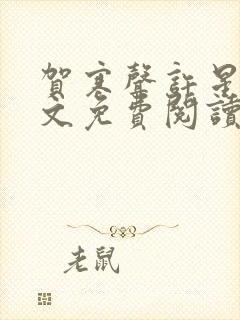 賀寒聲許星
文免費閱讀
老鼠